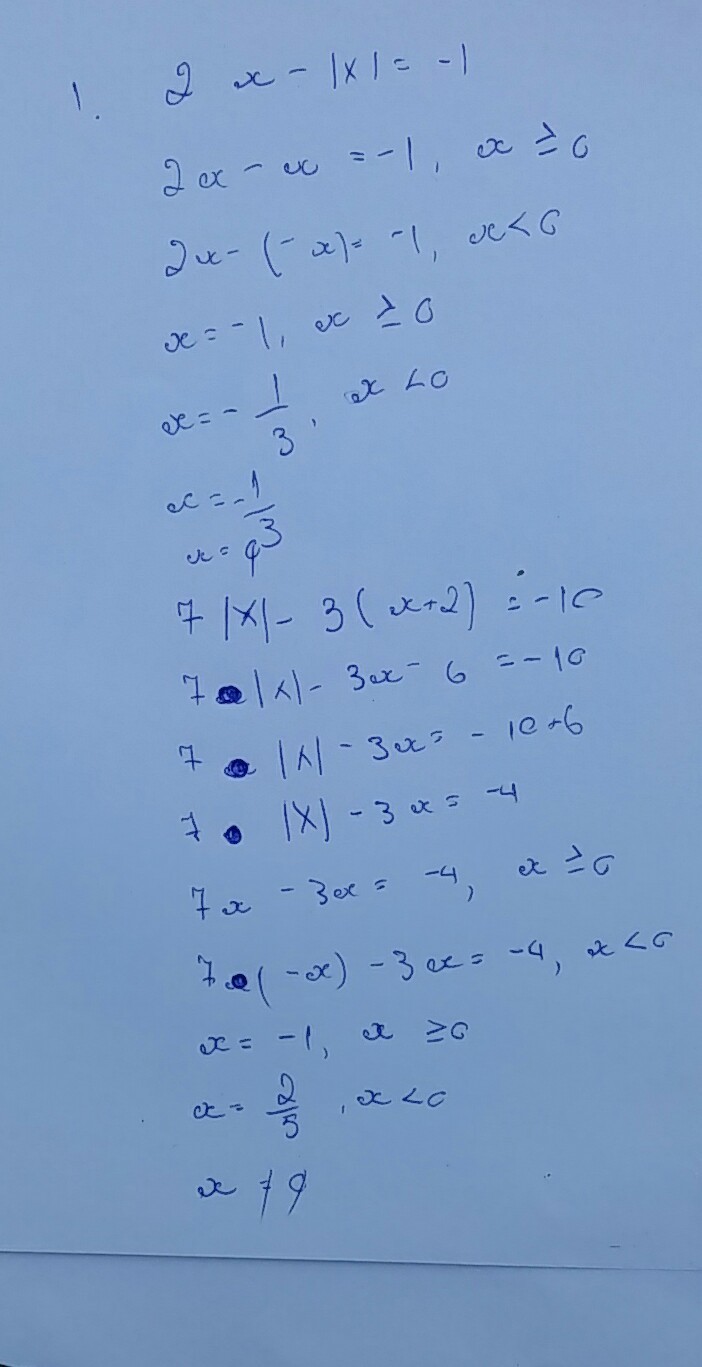 1. 2 x - |x| = -1
2x - x = -1, x ≥ 0
2x - (-x) = -1, x < 0
x = -1, x ≥ 0
x = - 1/3, x < 0
x = - 1/3
7 |x| - 3(x+2) = -10
7 • |x| - 3x - 6 = -10
7 • |x| - 3x = -10+6
7 • |x| - 3x = -4
7x - 3x = -4, x ≥ 0
7 • (-x) - 3x = -4, x < 0
x = -1, x ≥ 0
x = 2/5, x < 0